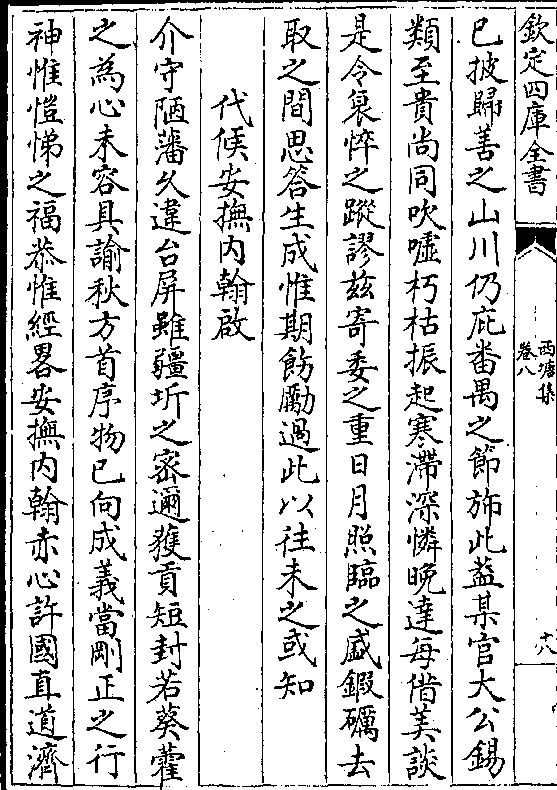 欽定四庫全書
西塘集
卷八
十八
已披歸善之山川仍庇番禺之節斾此葢某官大公錫
類至貴尚同吹噓朽枯振起寒滯深憐晚達每借美談
是令衰悴之蹤謬兹寄委之重日月照臨之盛鍜礪去
取之間思答生成惟期飭勵過此以往未之或知
代候安撫内翰啟
介守陋藩乆違台屏雖疆圻之宻邇獲貢短封若葵藿
之為心未容具諭秋方首序物已向成義當剛正之行
神惟愷悌之福恭惟經畧安撫内翰赤心許國直道濟